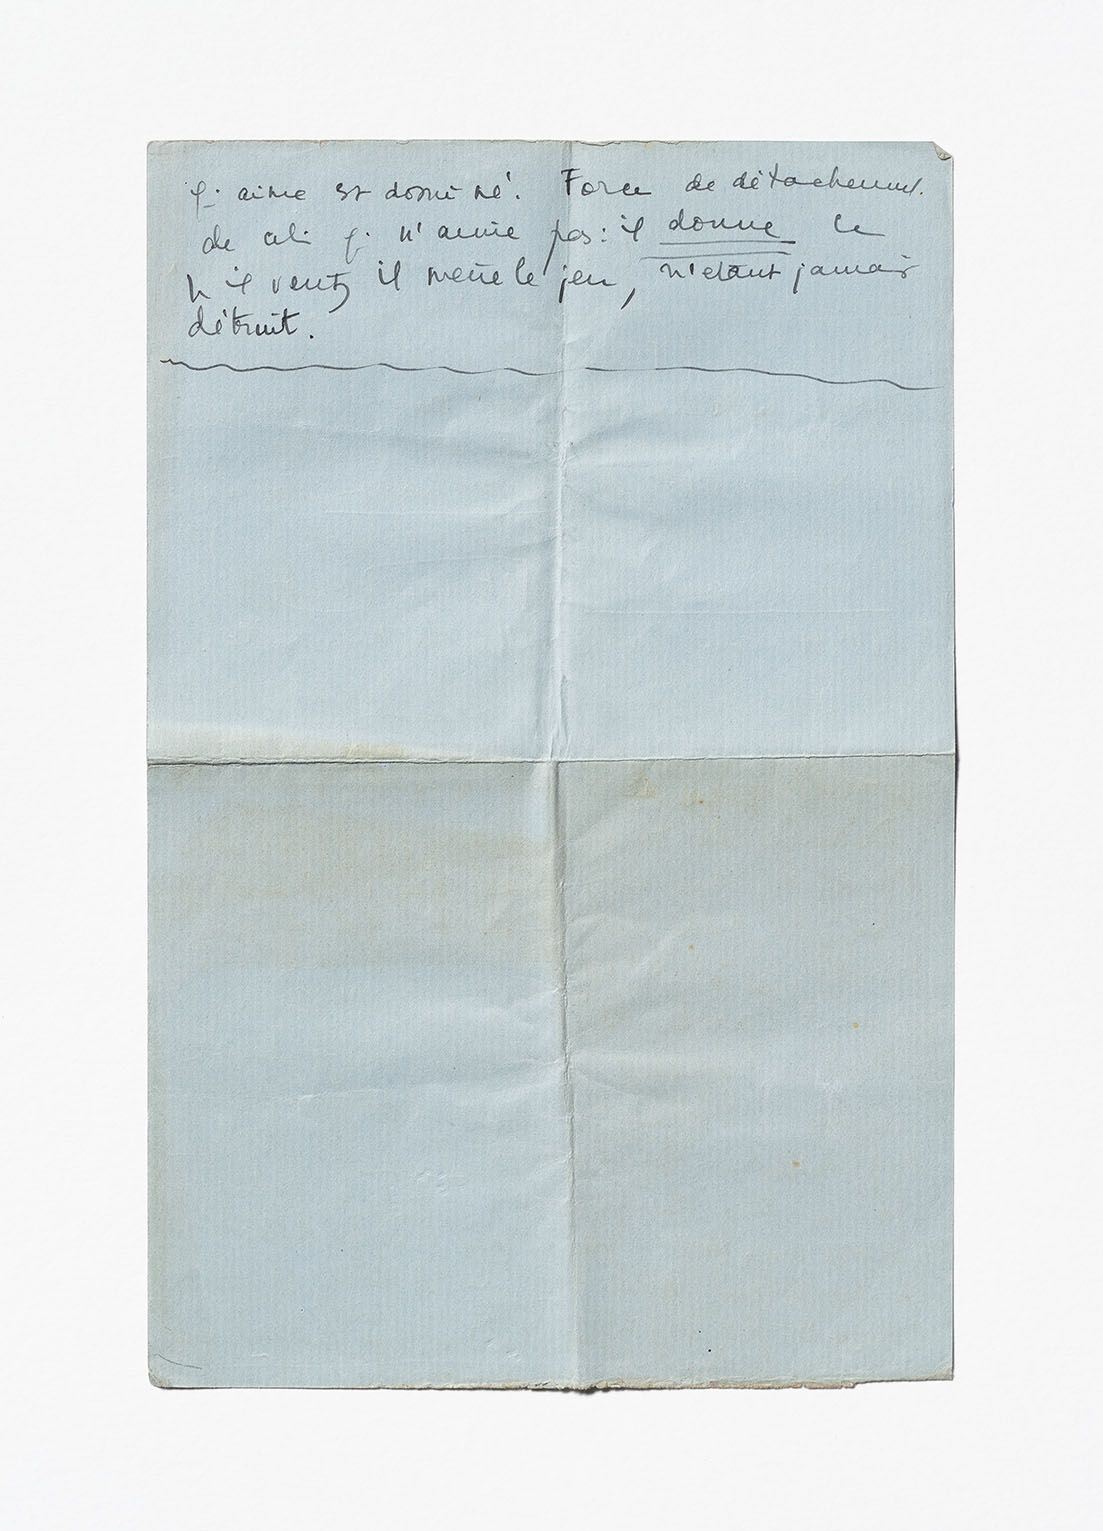 q. aime est dominé. Force de détachement.
de celui q. n'aime pas : il donne ce
qu'il veut, il mène le jeu, n'étant jamais
détruit.